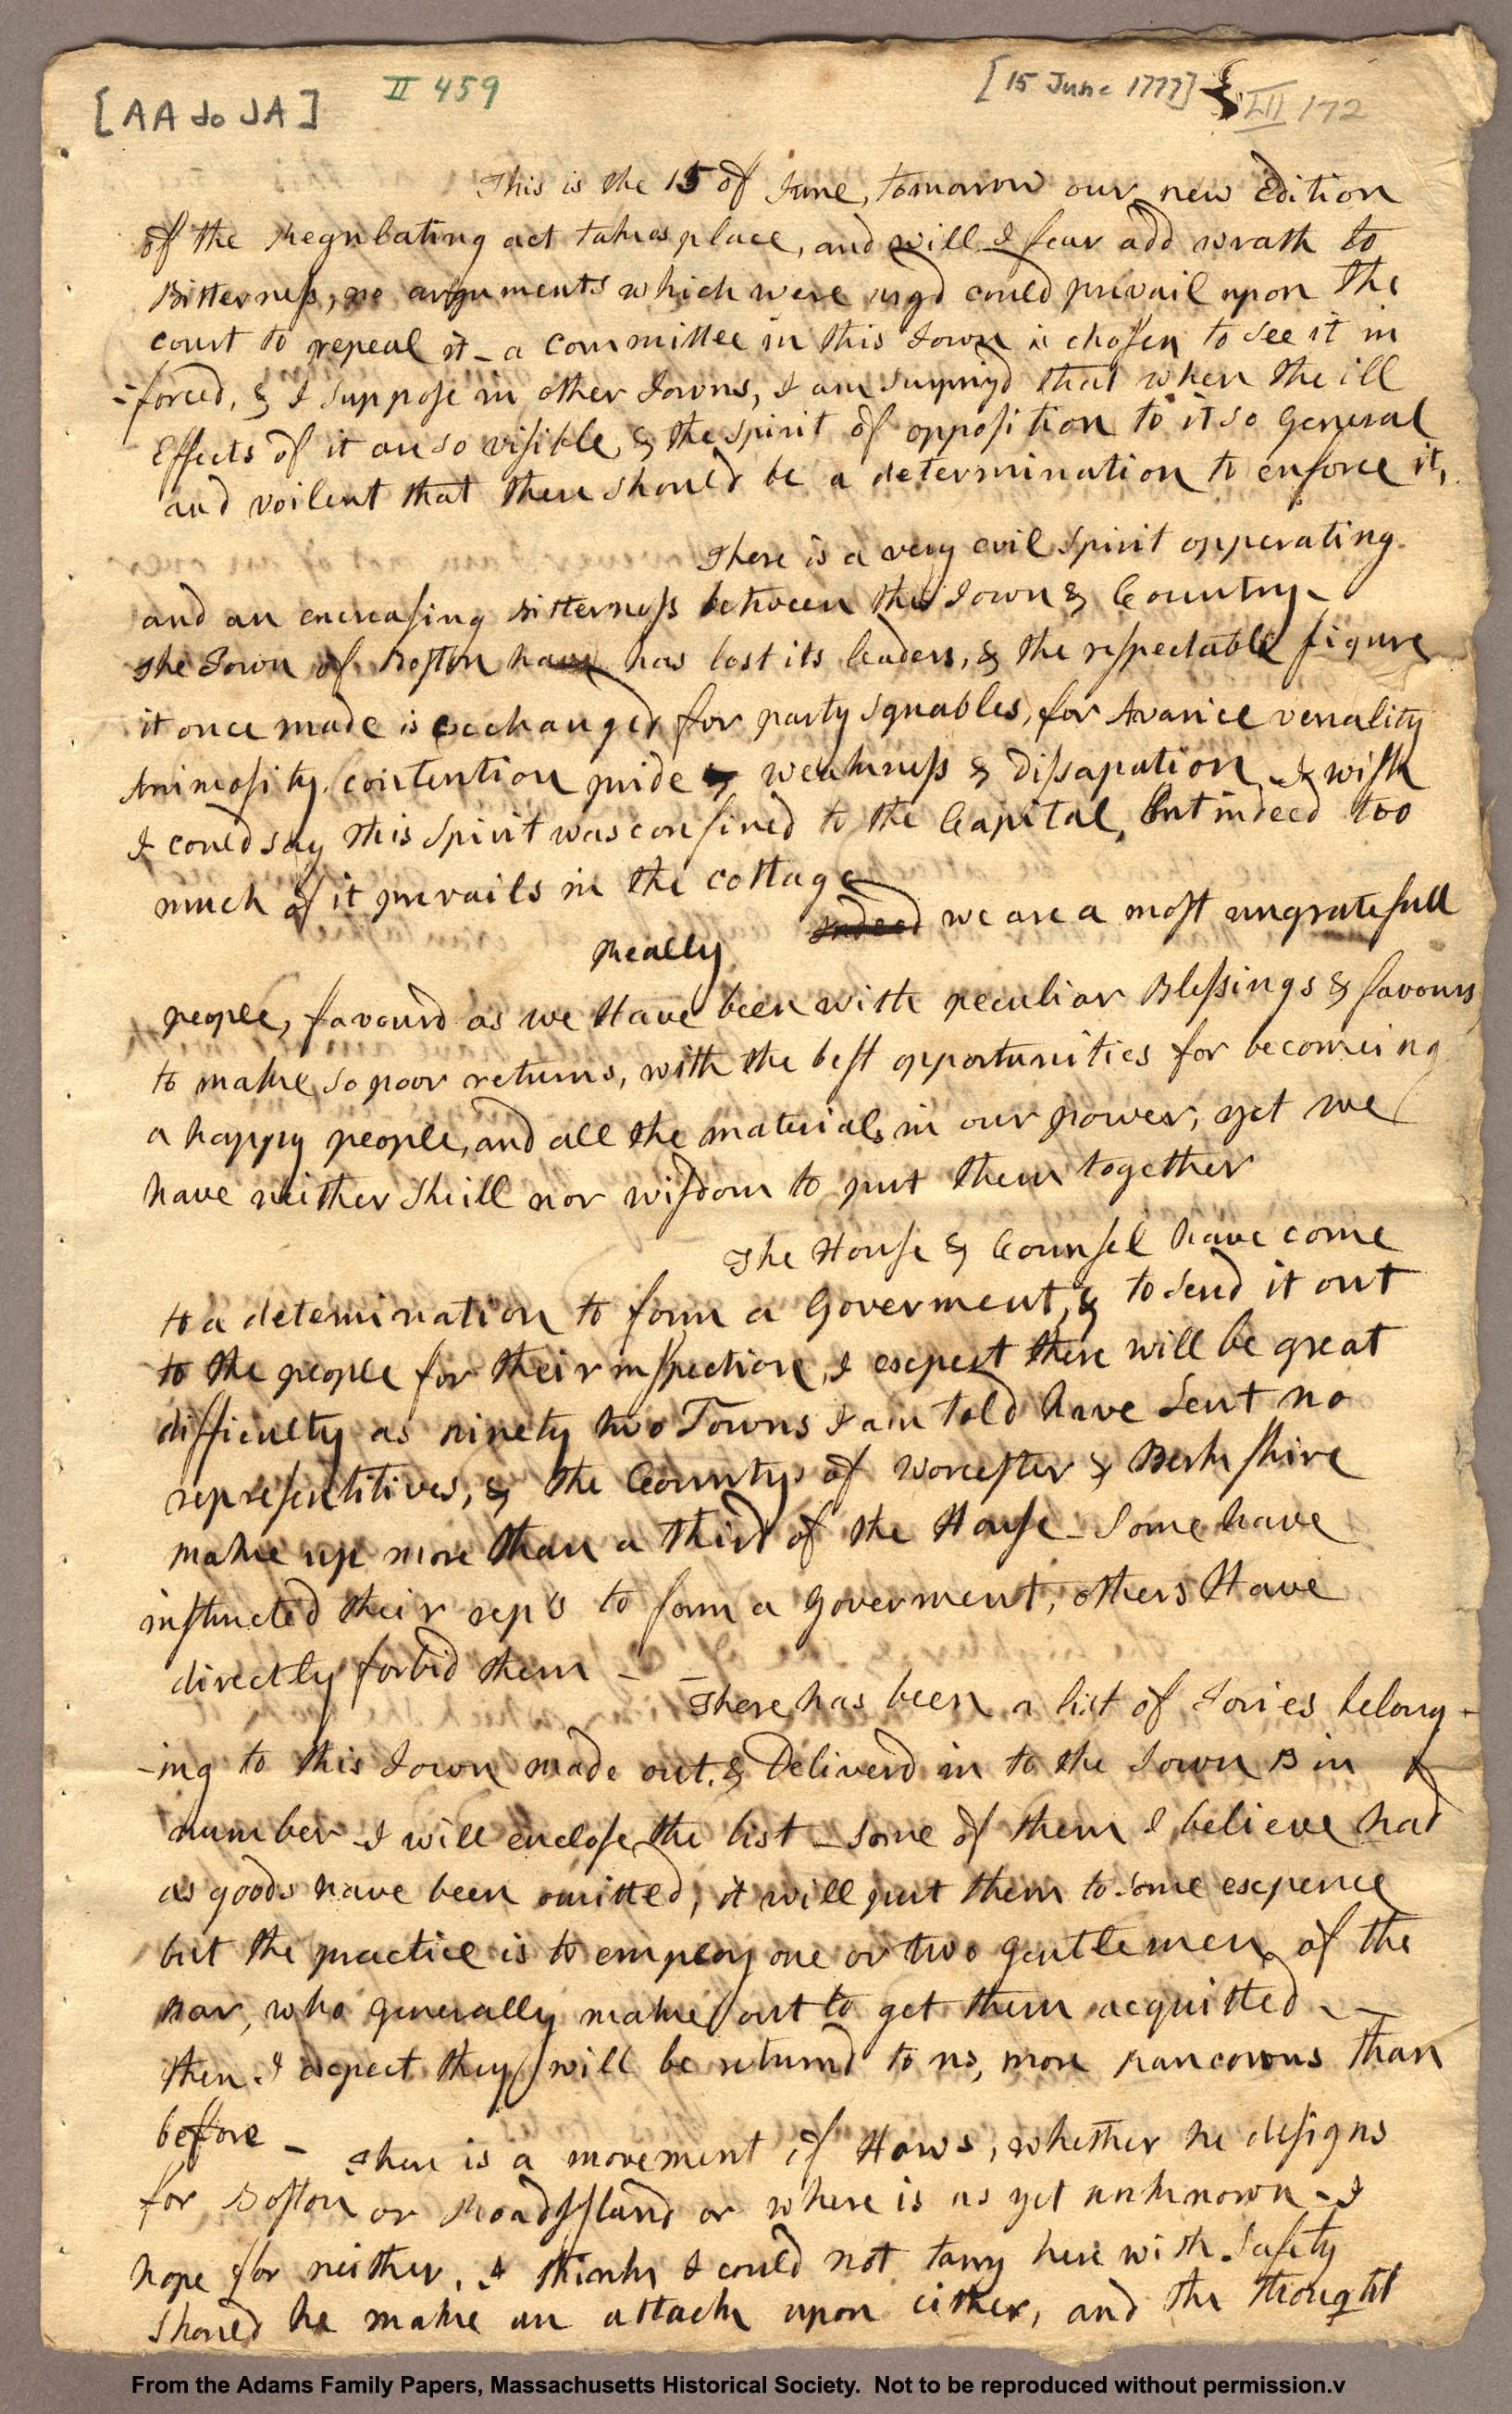 [AA to JA]
II 459
[15 June 1777]
LII 172
This is the 15 of June, tomorow our new Edition
of the Regulating act takes place, and will I fear add wrath to
Bitterness, no arguments which were urgd could prevail upon the
court to repeal it - a committee in this Town is chosen to see it in
-forced, & I suppose in other Towns, I am surprizd that when the ill
Effects of it are so visible, & the spirit of opposition to it so general
and voilent that there should be a determination to enforce it,
There is a very evil Spirit opperating
and an encreasing Bitterness between the Town & Country -
The Town of Boston have has lost its leaders, & the respectable figure
it once made is exchanged for party squables, for Avarice venality
Animosity, contention pride & weakness & dissapation - I wish
I could say this Spirit was confined to the Capital, but indeed too
much of it prevails in the cottage
Really Indeed we are a most ungratefull
people, favourd as we Have been with peculiar Blessings & favours
to make so poor returns, with the best opportunities for becomeing
a happy people, and all the materials in our power, yet we
have neither skill nor wisdom to put them together
The House & Counsel have come
to a detemination to form a Goverment, & to send it out
to the people for their inspection, I expect there will be great
difficulty as ninety two Towns I am told have sent no
representitives, & the Countys of Worcester & Berkshire
make up more than a third of the House - Some have
instructed their rep's to form a Goverment, others Have
directly forbid them - - There has been a list of Tories belong -
-ing to this Town made out, & Deliverd in to the Town 13 in
number - I will enclose the list - some of them I believe had
as goods have been omitted, it will put them to some expence
but the practice is to employ one or two gentlemen of the
Bar, who generally make out to get them acquitted -
then I expect they will be returnd to us, more rancorous than
before - There is a movement of Hows, whether he designs
for Boston or RhoadIsland or where is as yet unknown - I
hope for neither, I think I could not tarry here with Safety
should he make an attack upon either, and the thought
From the Adams Family Papers, Massachusetts Historical Society. Not to be reproduced without permission.v